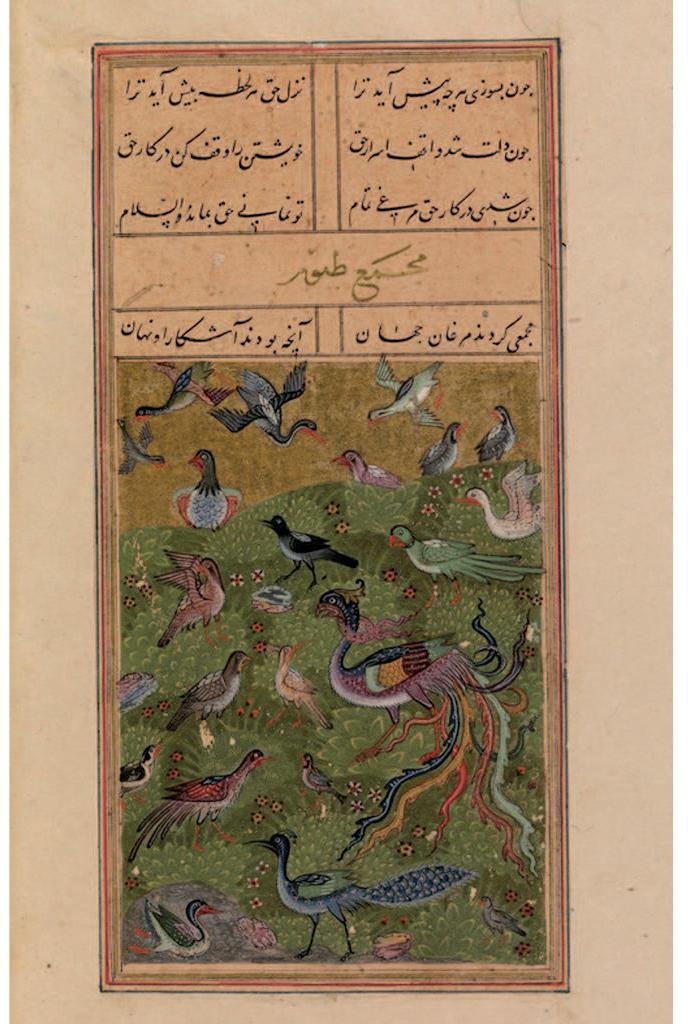 چون بسوزی هرچه پیش آید ترا نزل حق هر لحظه بیش آید ترا
چون دلت شد واقف اسرار حق خویشتن را وقف کن در کار حق
چون شدی در کار حق مرغ تمام تو نمانی حق بماند والسلام
مجمع طیور
مجمعی کردند مرغان جهان آنچه بودند آشکارا و نهان